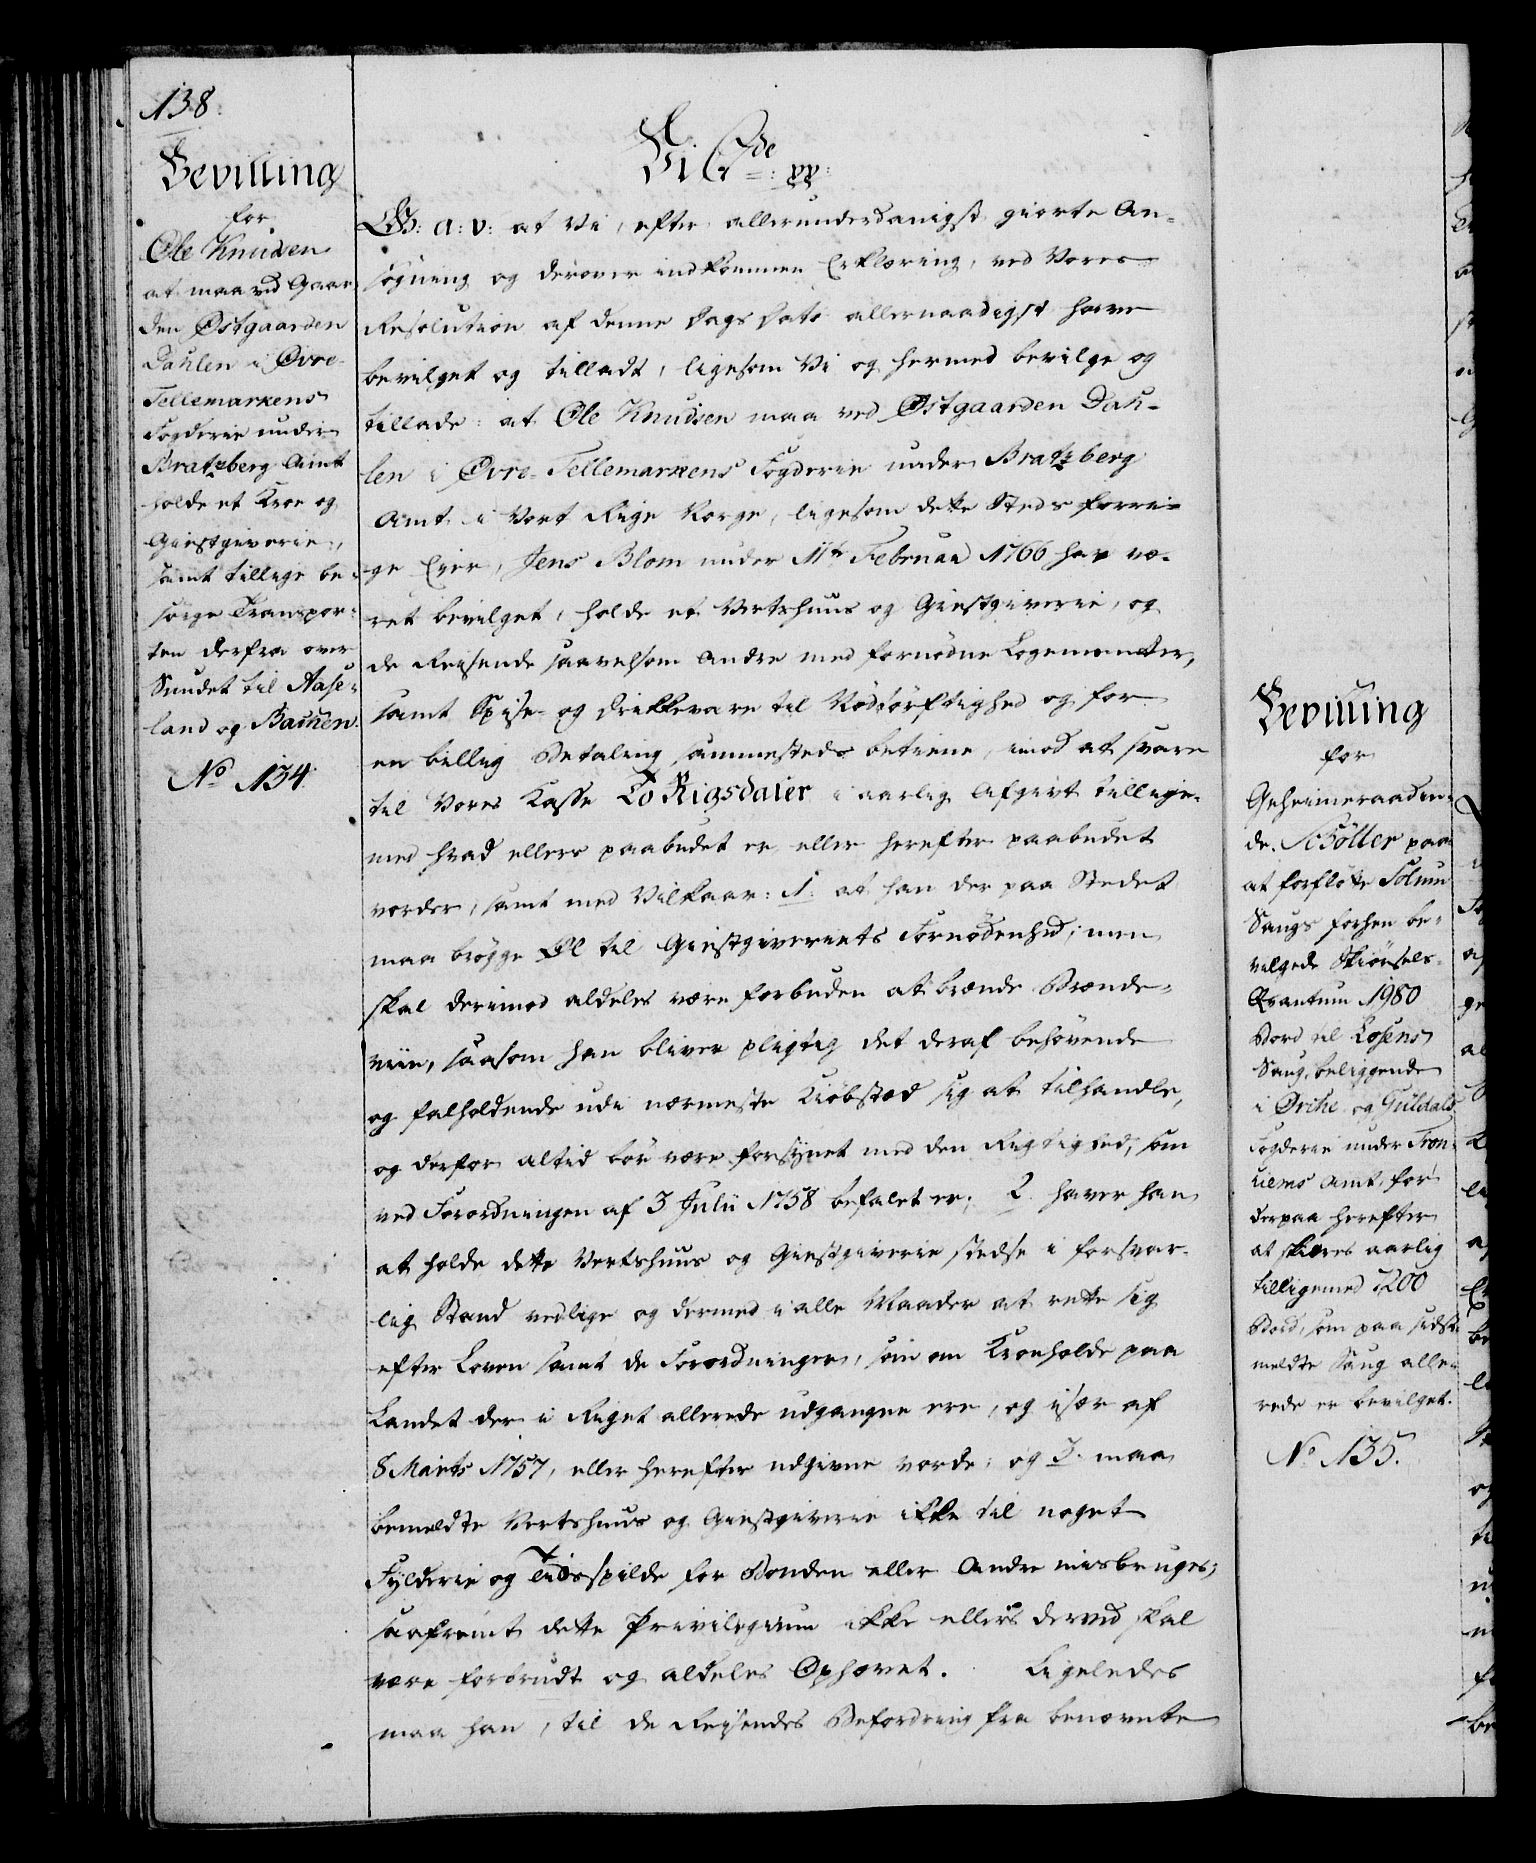 138.
Bevilling
for
Ole Knudsen
at maa ved Gaar-
den Østgaarden
Dahlen i Øvre-
Tellemarkens
Fogderie under
Bratzberg Amt
holde et Kroe og
Giestgiverie,
samt tillige be-
sørge Transpor-
ten derfra over
Sundet til Aase-
land og Bakken.
No 134.
Vi C 7de: pp:
G: a: v: at Vi, efter allerunderdanigst giorte An-
søgning og derover indkommen Erklæring, ved Vores
Resolution af denne Dags Dato allernaadigst have
bevilget og tilladt, ligesom Vi og hermed bevilge og
tillade: at Ole Knudsen maa ved Østgaarden Dah-
len i Øvre-Tellemarkens Fogderie under Bratzberg
Amt i Vort Rige Norge, ligesom dette Steds forri-
ge Eier, Jens Blom under 11te Februar 1766 har væ-
ret bevilget, holde et Vertshuus og Giestgiverie, og
de Reisende saavelsom andre med fornødne Logementer,
samt Spise- og Drikkevare til Nødtørftighed og for
en billig Betaling sammesteds betiene, imod at svare
til Vores Kasse To Rigsdaler i aarlig Afgivt tillige-
med hvad ellers paabudet er, eller herefter paabudet
vorder, samt med Vilkaar: 1. at han der paa Stedet
maa brygge Øl til Giestgiveriets Fornødenhed, men
skal derimod aldeles være forbuden at brænde Brænde-
viin, saasom han bliver pligtig det deraf behøvende
og falholdende udi nærmeste Kiøbstæd sig at tilhandle,
og derfor altid bør være forsynet med den Rigtighed, som
ved Forordningen af 3 Julii 1758 befalet er; 2. haver han
at holde dette Vertshuus og Giestgiverie stedse i forsvar-
lig Stand vedlige og dermed i alle Maader at rette sig
efter Loven samt de Forordninger, som om Kroehold paa
Landet der i Riget allerede udgangne ere, og især af
8 Marts 1757, eller herefter udgivne vorde; og 3. maa
bemeldte Vertshuus og Giestgiverie ikke til noget
Fylderie og Tidsspilde for Bonden eller Andre misbruges;
saafremt dette Privilegium ikke ellers derved skal
være forbrudt og aldeles Ophævet. Ligeledes
maa han, til de Reisendes Befordring fra benævnte
Bevilling
for
Geheimeraadin-
de Schøller paa
at forflötte Solum
Saugs forhen be-
vilgede Skiørsels-
Qvantum 1980
Bord til Losens
Saug, beliggende
i Ørche og Guldals
Fogderie under Tron-
hiems Amt, for
derpaa herefter
at skieres aarlig
tilligemed 7200
Bord, som paa sidst-
meldte Saug alle-
rede er bevilget.
No 135.